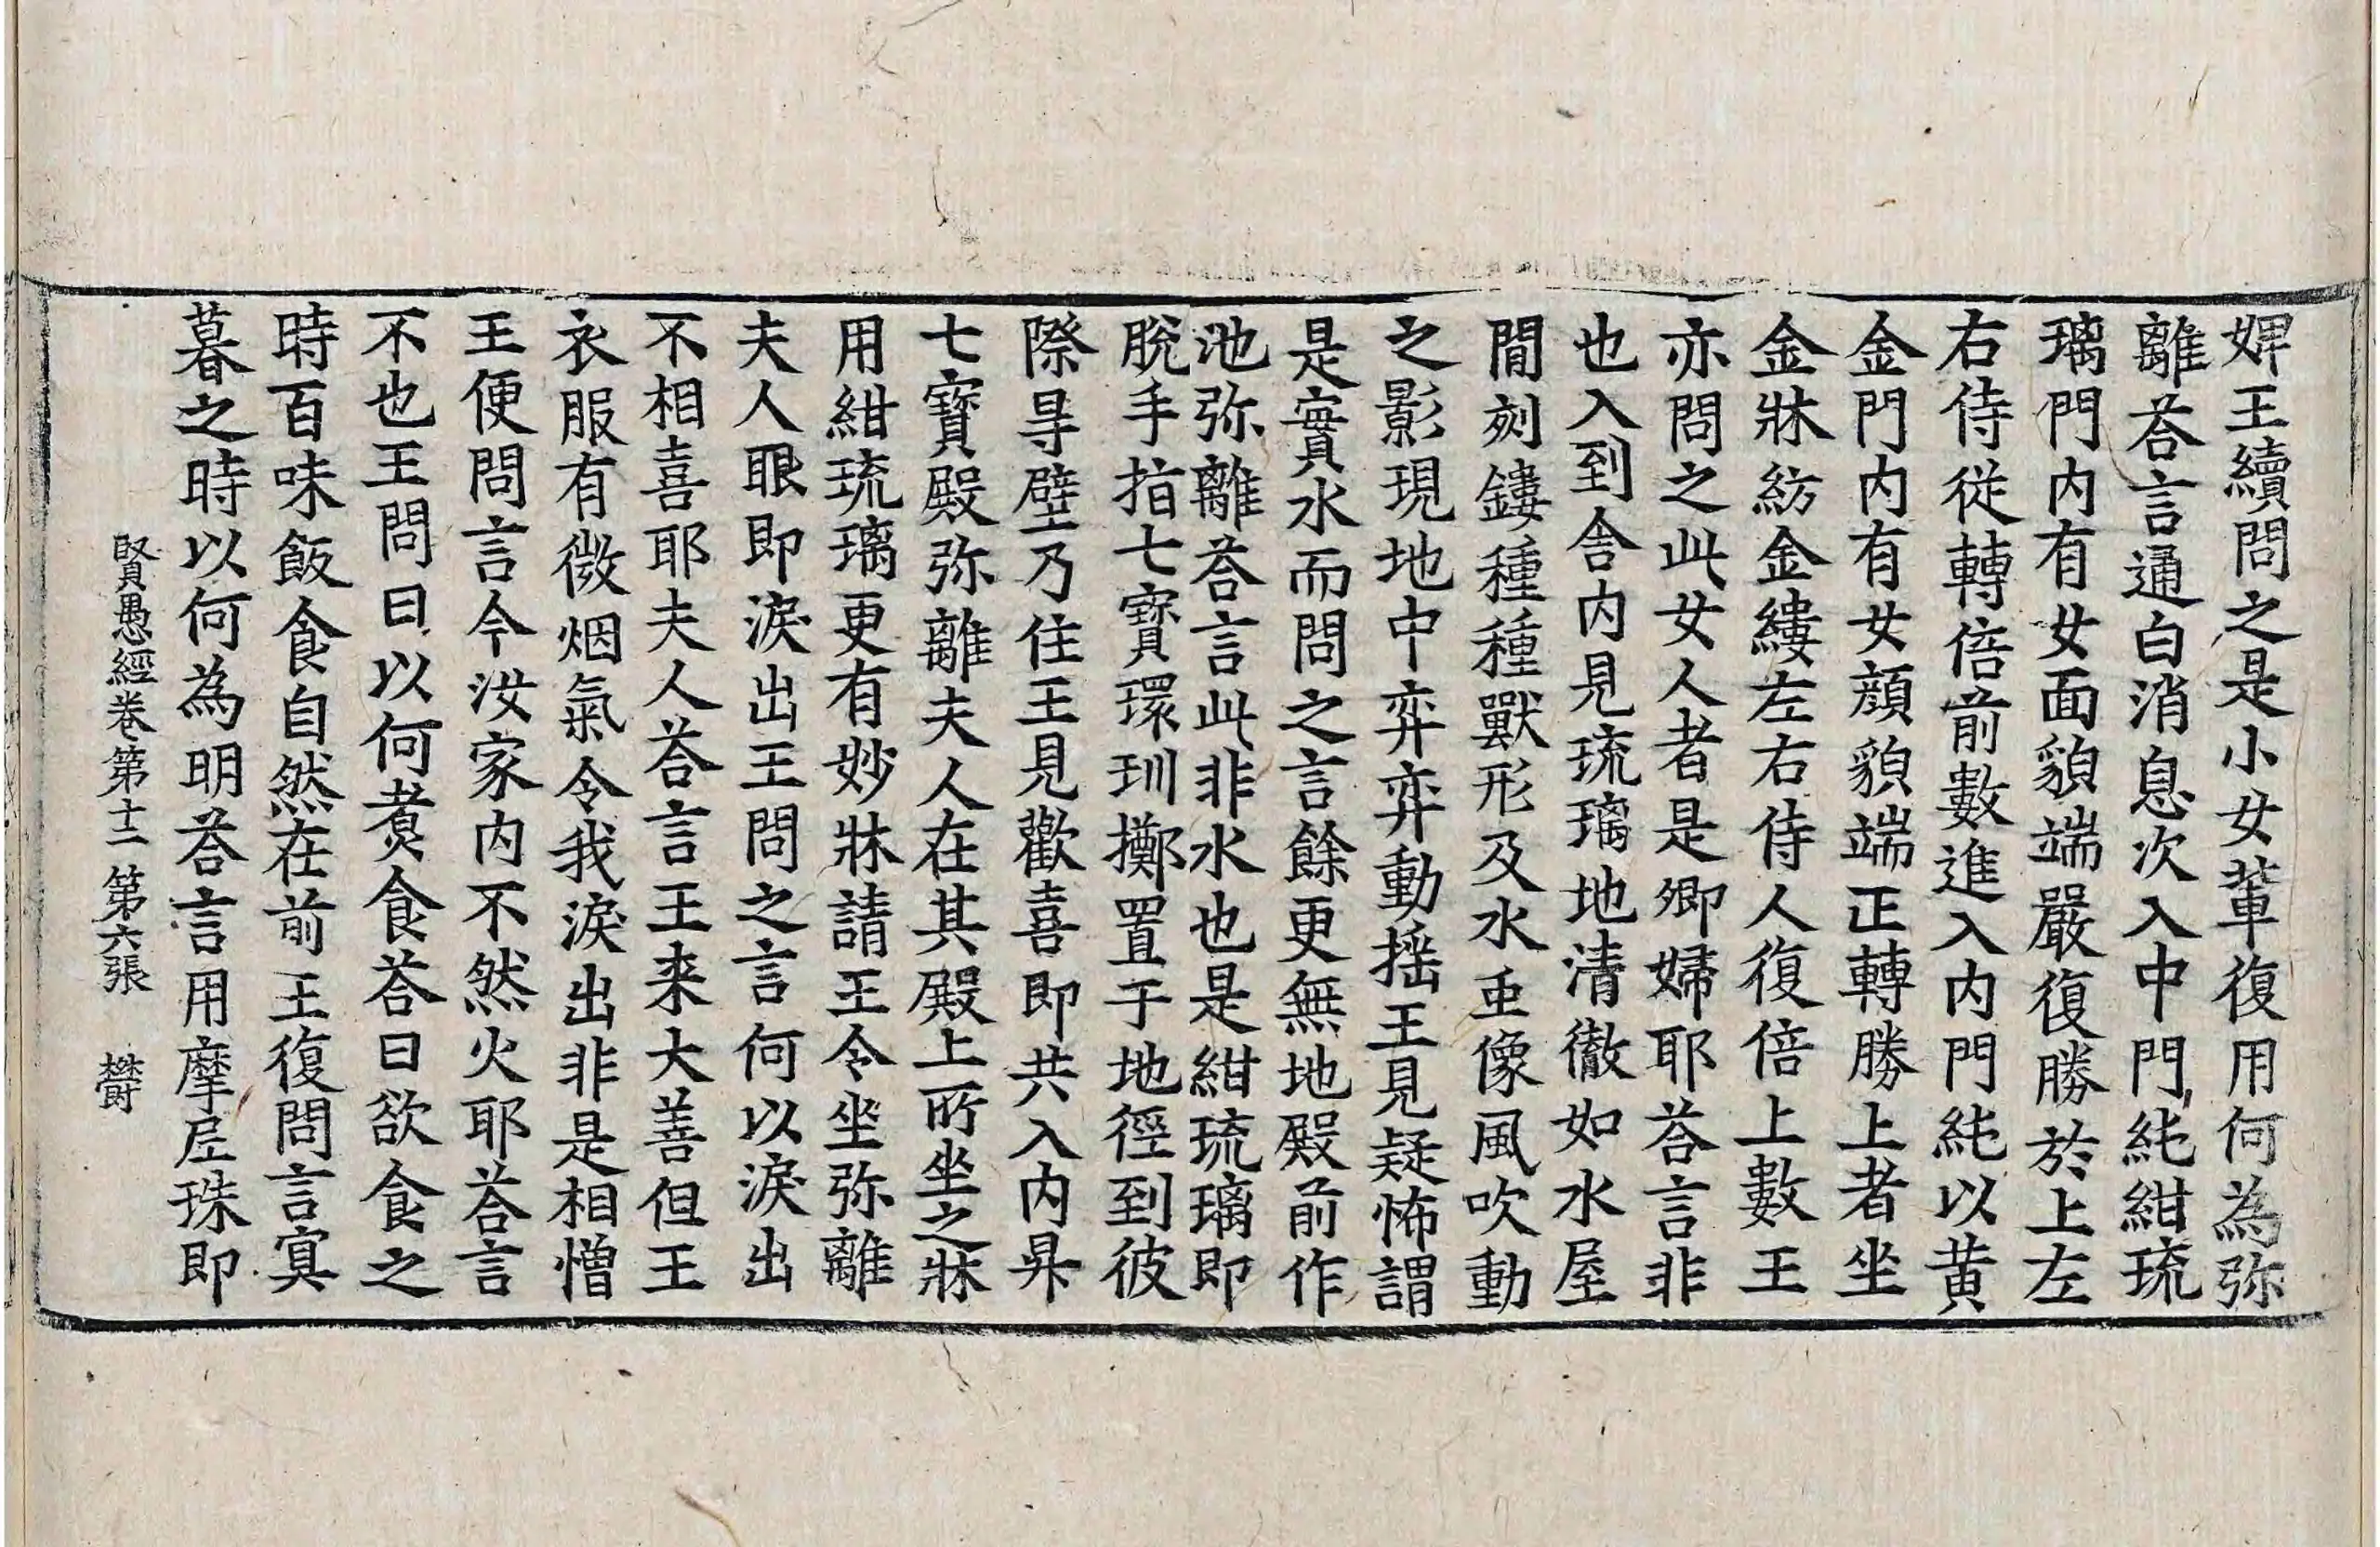 婢王續問之是小女輩復用何為弥
離荅言通白消息次入中門純紺琉
璃門内有女面貌端嚴復勝於上左
右侍從轉倍前數進入内門純以黄
金門内有女顔貌端正轉勝上者坐
金牀紡金縷左右侍人復倍上數王
亦問之此女人者是卿婦耶荅言非
也入到舍内見琉璃地清徹如水屋
間刻鏤種種獸形及水虫像風吹動
之影現地中弈弈動摇王見疑怖謂
是實水而問之言餘更無地殿前作
池弥離荅言此非水也是紺琉璃即
脫手指七寳環玔擲置于地徑到彼
際㝵壁乃住王見歡喜即共入内昇
七寳殿弥離夫人在其殿上所坐之牀
用紺琉璃更有妙牀請王令坐弥離
夫人眼即淚出王問之言何以淚出
不相喜耶夫人荅言王来大善但王
衣服有微烟氣令我淚出非是相憎
王便問言今汝家内不然火耶荅言
不也王問曰以何煮食荅曰欲食之
時百味飯食自然在前王復問言寘
暮之時以何為明荅言用摩尼珠即
賢愚經卷第十二 第六張 欝